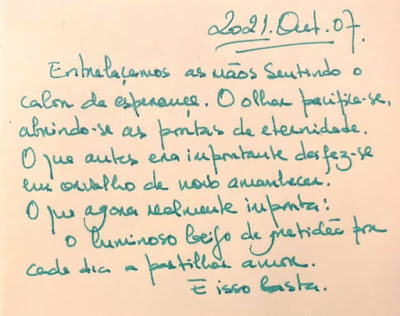 2021. Out. 07.
Entrelaçamos as mãos sentindo o
calor da esperança. O olhar pacifica-se,
abrindo-se as portas da eternidade.
O que antes era importante desfez-se
em orvalho de novo amanhecer.
O que agora realmente importa:
o luminoso beijo de gratidão por
cada dia a partilhar amor.
E isso basta.